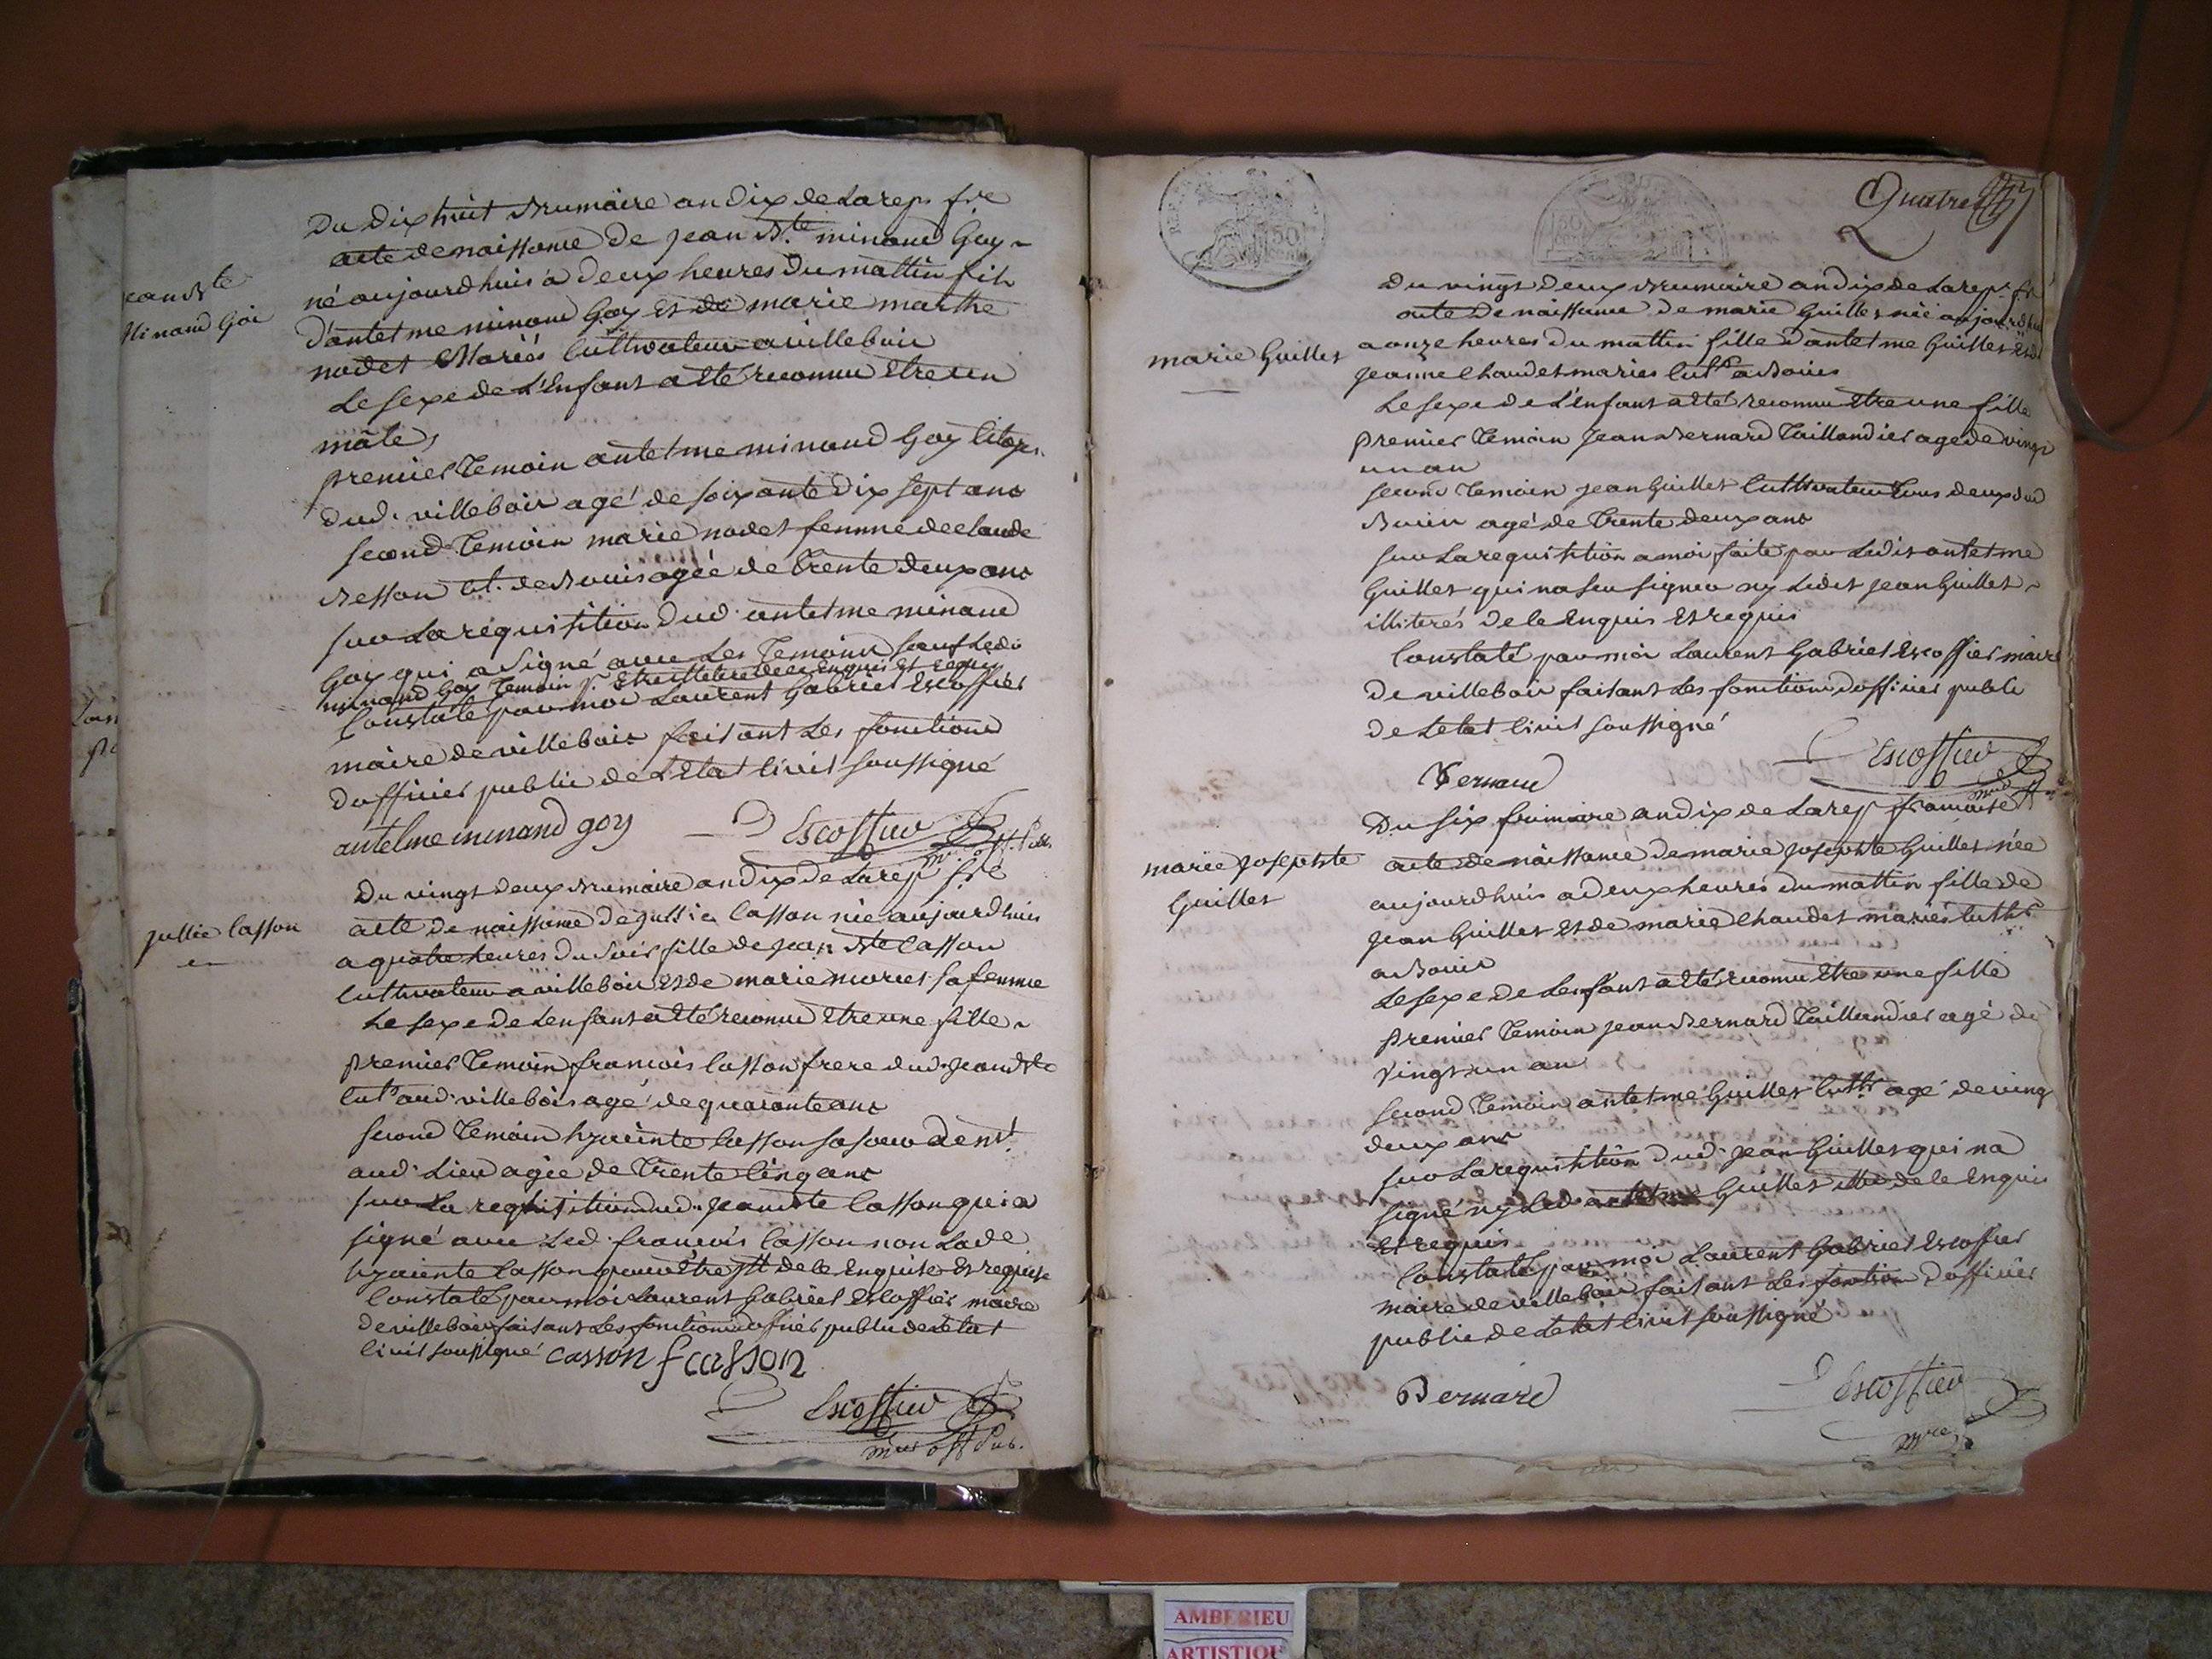 Du dix huit Brumaire an dix de La rep. fre
acte de naissance de jean Bte minand Goy
né aujourdhuis a deux heures du mattin fils
d'antelme minand Goy Et de marie marthe
nodet Mariés Cultivateur a villebois
Le sexe de L'Enfant a Eté reconnu Etre un
mâle
premier temoin antelme minand Goy Citoyn
dud. villebois agé de soixante dix sept ans
second temoin marie nodet femme de claude
Besson Cit. de Bouis agée de trente deux ans
sur La réquisition dud. antelme minand
Goy qui a signé avec Les temoins sauf Ledi
minand Goy temoin p. Etre illetere de ce Enquis Et requis
Constaté par moi Laurent Gabriel Escoffier
maire de villebois faisant Les fonctions
d'officier public de L'Etat Civil soussigné
antelme minand goy Escoffier mre off. Pub.
jean Bte
Minand Goi
Du vingt deux Brumaire an dix de La rep fre
acte de naissance de jullie Casson née aujourdhuis
a quatre heures du soir fille de jean Bte Casson
Cultivateur a villebois Et de marie muriel sa femme
Le sexe de L'enfant a Eté reconnu Etre une fille
premier temoin francois Casson frere dud. jean Bte
Cult. aud. villebois agé de quarante ans
second temoin hyacinte Casson sa soeur demt.
aud. Lieu agée de trente Cinq ans
sur La requisition dud. jean Bte Casson qui a
signé avec Led. francois Casson non Lade
hyacinte Casson pour Etre illt de ce Enquise Et requise
Constaté par moi Laurent Gabriel Escoffier maire
de villebois faisant Les fonctions d'officier public de L'etat
Civil soussigné casson f casson
Escoffier
mre off Pub.
jullie Casson
Quatre
50
50
Du vingt deux Brumaire an dix de La rep. fr
acte de naissance de marie Guillet née aujourdhui
a onze heures du mattin fille d'antelme Guillet Et de
jeanne Chaudet mariés Cultr a Bouis
Le sexe de L'enfant a Eté reconnu Etre une fille
premier temoin jean Bernard taillandier age de vingt
un an
second temoin jean Guillet Cultivateur tous deux dud
Bouis agé de trente deux ans
sur La requisition a moi faite par Ledit antelme
Guillet qui na seu signer ny Ledit jean Guillet
illiterés de ce Enquis Et requis
Constaté par moi Laurent Gabriel Escoffier maire
de villebois faisant Les fonctions d'officier public
de L'etat Civil soussigné
Bernard Escoffier mre
marie Guillet
Du six frimaire an dix de La rep francaise
acte de naissance de marie josephte Guillet née
aujourdhuis a deux heures du mattin fille de
jean Guillet Et de marie Chaudet mariés Cultr
a Bouis
Le sexe de L'enfant a Eté reconnu Etre une fille
premier temoin jean Bernard taillandier agé de
vingt un an
second temoin antelme Guillet Cultr agé de ving
deux ans
sur La requisition dud. jean Guillet qui na
signé ny Led. antelme Guillet illt. de ce Enquis
Et requis
Constaté par moi Laurent Gabriel Escoffier
maire de villebois faisant Les fonction d'officier
public de L'etat Civil soussigné
Bernard Escoffier
mre
marie josephte
Guillet
AMBERIEU
ARTISTIQU